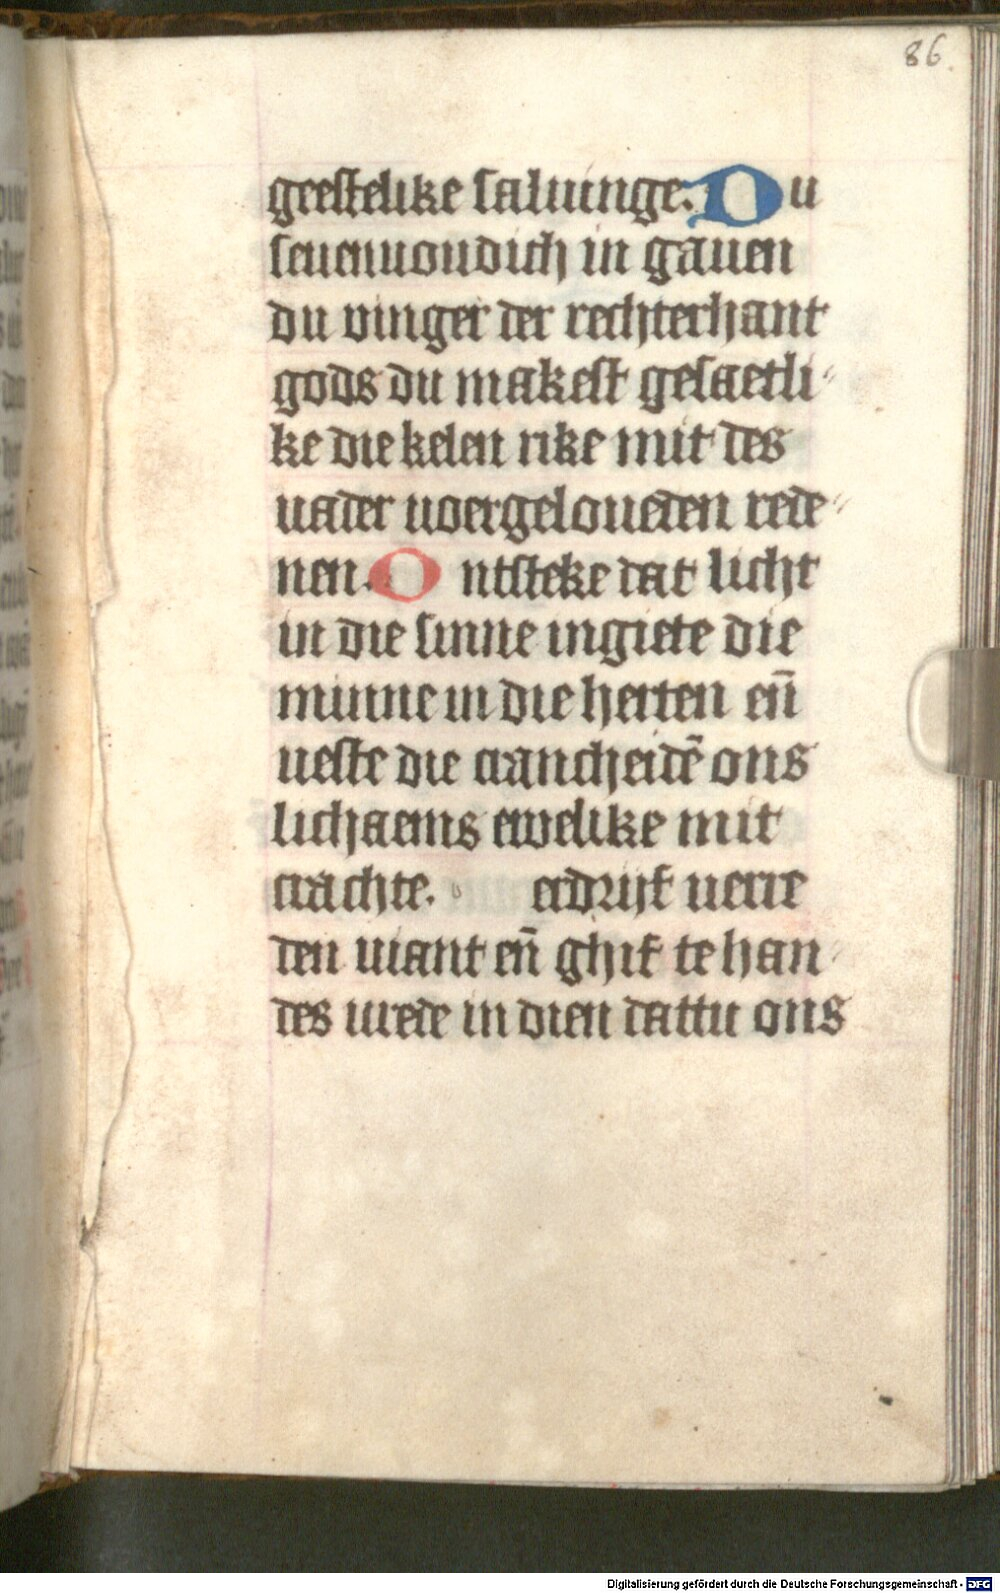 86.
geestelike saluinge. Du
seuenuoudich in gauen
du vinger der rechterhant
gods du makest gesaetli
ke die kelen rike mit des
uader uoergeloueden rede
nen. Ontsteke dat licht
in die sinne ingiete die
minne in die herten en̄
ueste die crancheidē ons
lichaems ewelike mit
crachte. erdrijf uerre
den uiant en̄ ghif te han
des urede in dien dattu ons
Digitalisierung gefördert durch die Deutsche Forschungsgemeinschaft - DFG